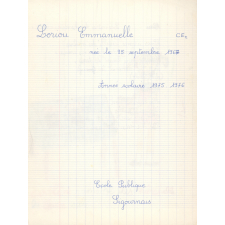 Loriou Emmanuelle CE₂
née le 22 septembre 1967
Année scolaire 1975 1976
Ecole Publique
Sigournais